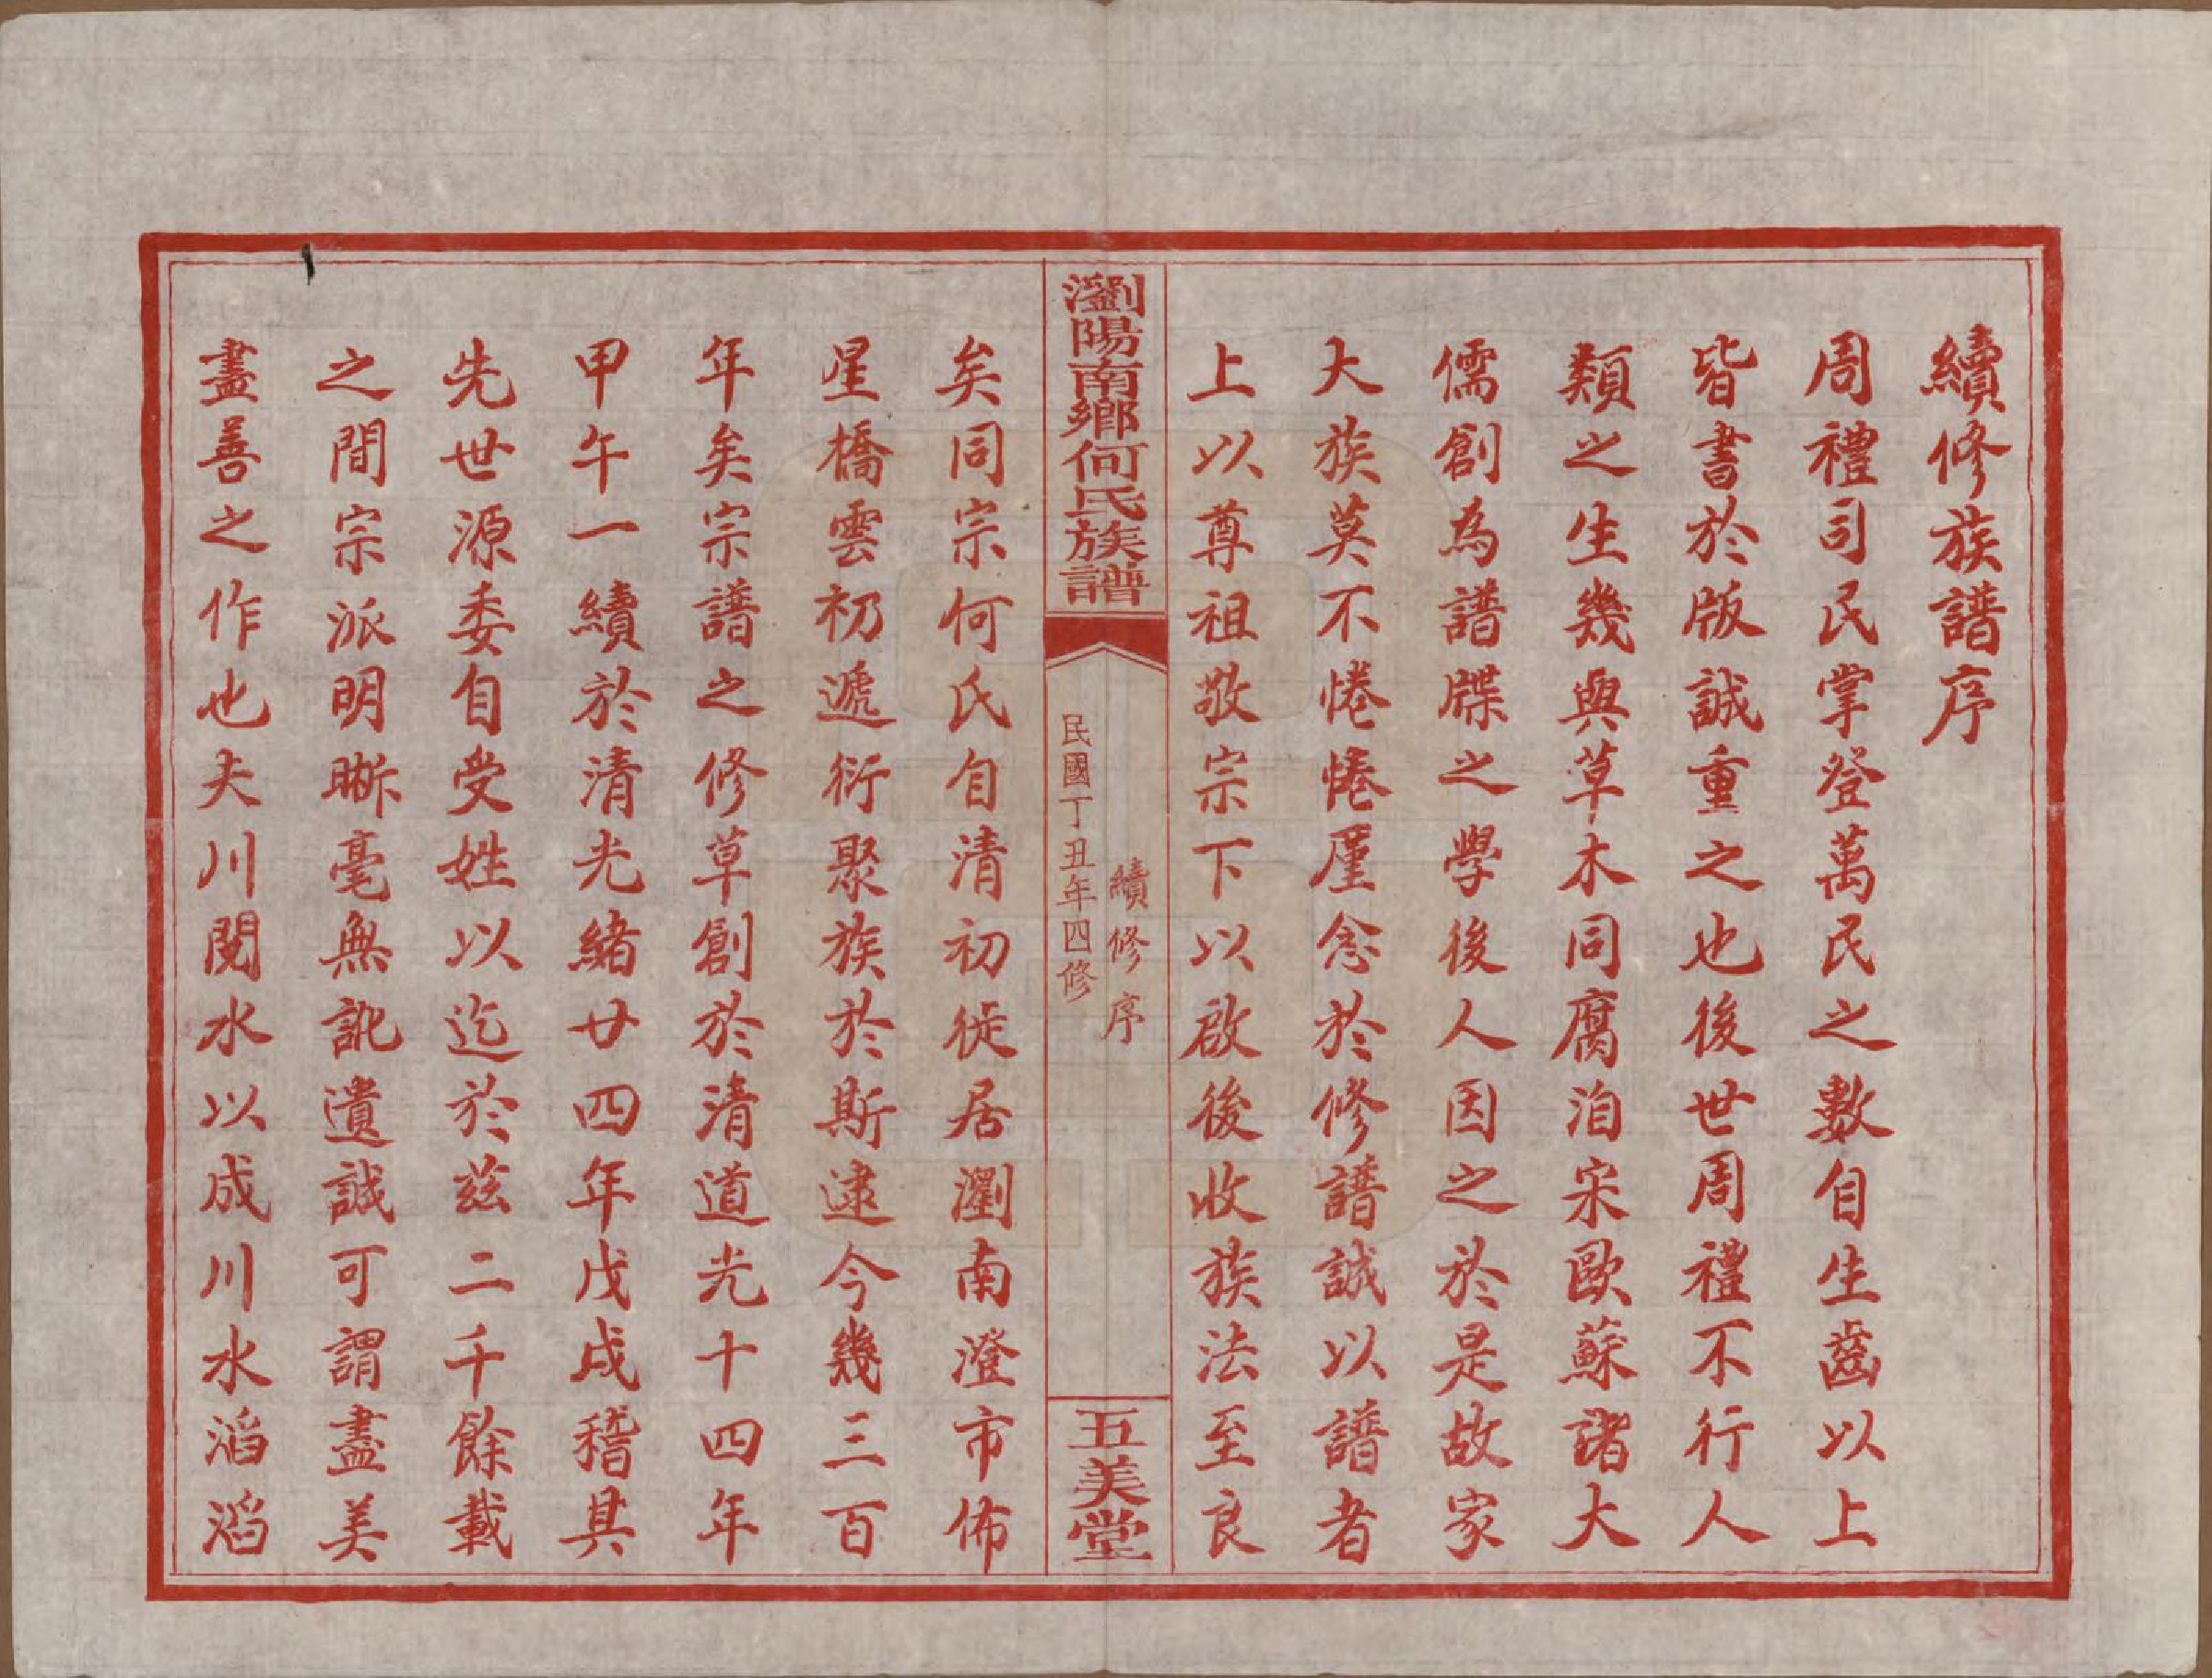 續修族譜序
周禮司民掌登萬民之數自生齒以上
皆書於版誠重之也後世周禮不行人
類之生幾與草木同腐洎宋歐蘇諸大
儒創為譜牒之學後人因之於是故家
大族莫不惓惓廑念於修譜誠以譜者
上以尊祖敬宗下以啟後收族法至良
瀏陽南鄉何氏族譜
續修序
民國丁丑年四修
五美堂
矣同宗何氏自清初徙居瀏南澄市佈
星橋雲初遞衍聚族於斯逮今幾三百
年矣宗譜之修草創於清道光十四年
甲午一續於清光緒廿四年戊戌稽其
先世源委自受姓以迄於茲二千餘載
之間宗派明晰毫無訛遺誠可謂盡美
盡善之作也夫川閱水以成川水滔滔